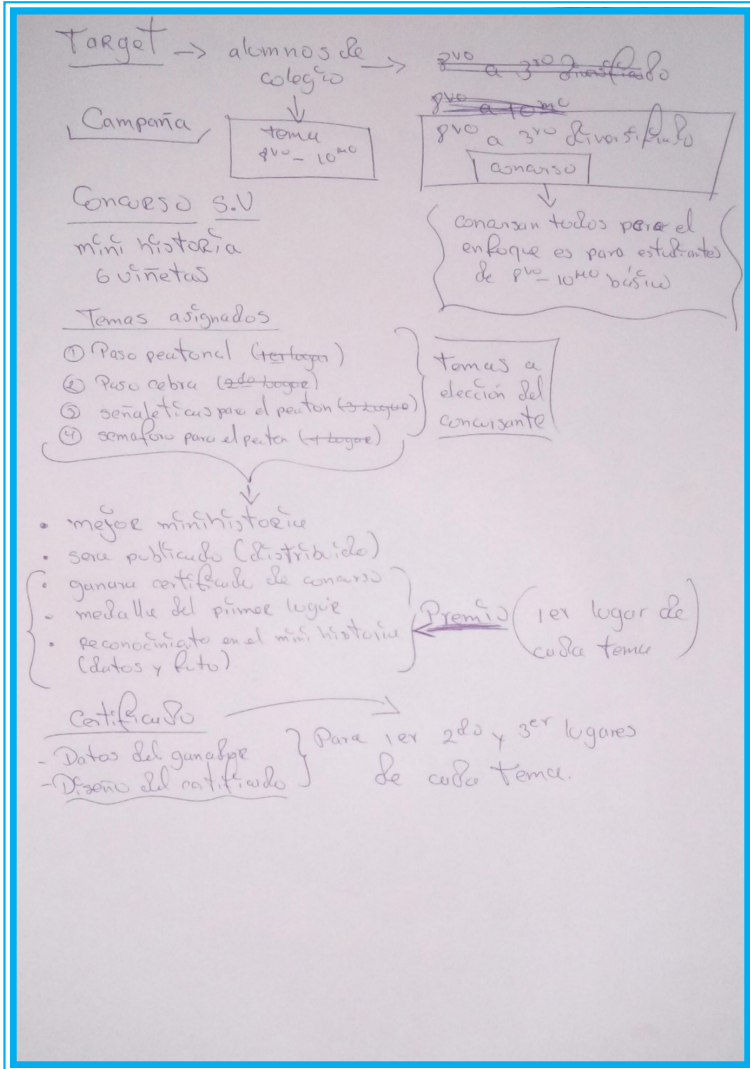 Target → alumnos de colegio →
8vo a 3ro diversificado
8vo a 10mo
Campaña
tema
8vo - 10mo
8vo a 3ro diversificado
concurso
Concurso S.V
mini historia
6 viñetas
concursan todos pero el
enfoque es para estudiantes
de 8vo - 10mo básico
Temas asignados
① Paso peatonal (1er lugar)
② Paso cebra (2do lugar)
③ señaleticas para el peaton (3 lugar)
④ semaforo para el peaton (4 lugar)
temas a
elección del
concursante
• mejor minihistoria
• sera publicado (distribuido)
• ganara certificado de concurso
• medalla del primer lugar
• reconocimiato en el mini historia
(datos y foto)
Premio (1er lugar de
cada tema)
Certificado
- Datos del ganador
- Diseño del certificado
Para 1er 2do y 3er lugares
de cada tema.